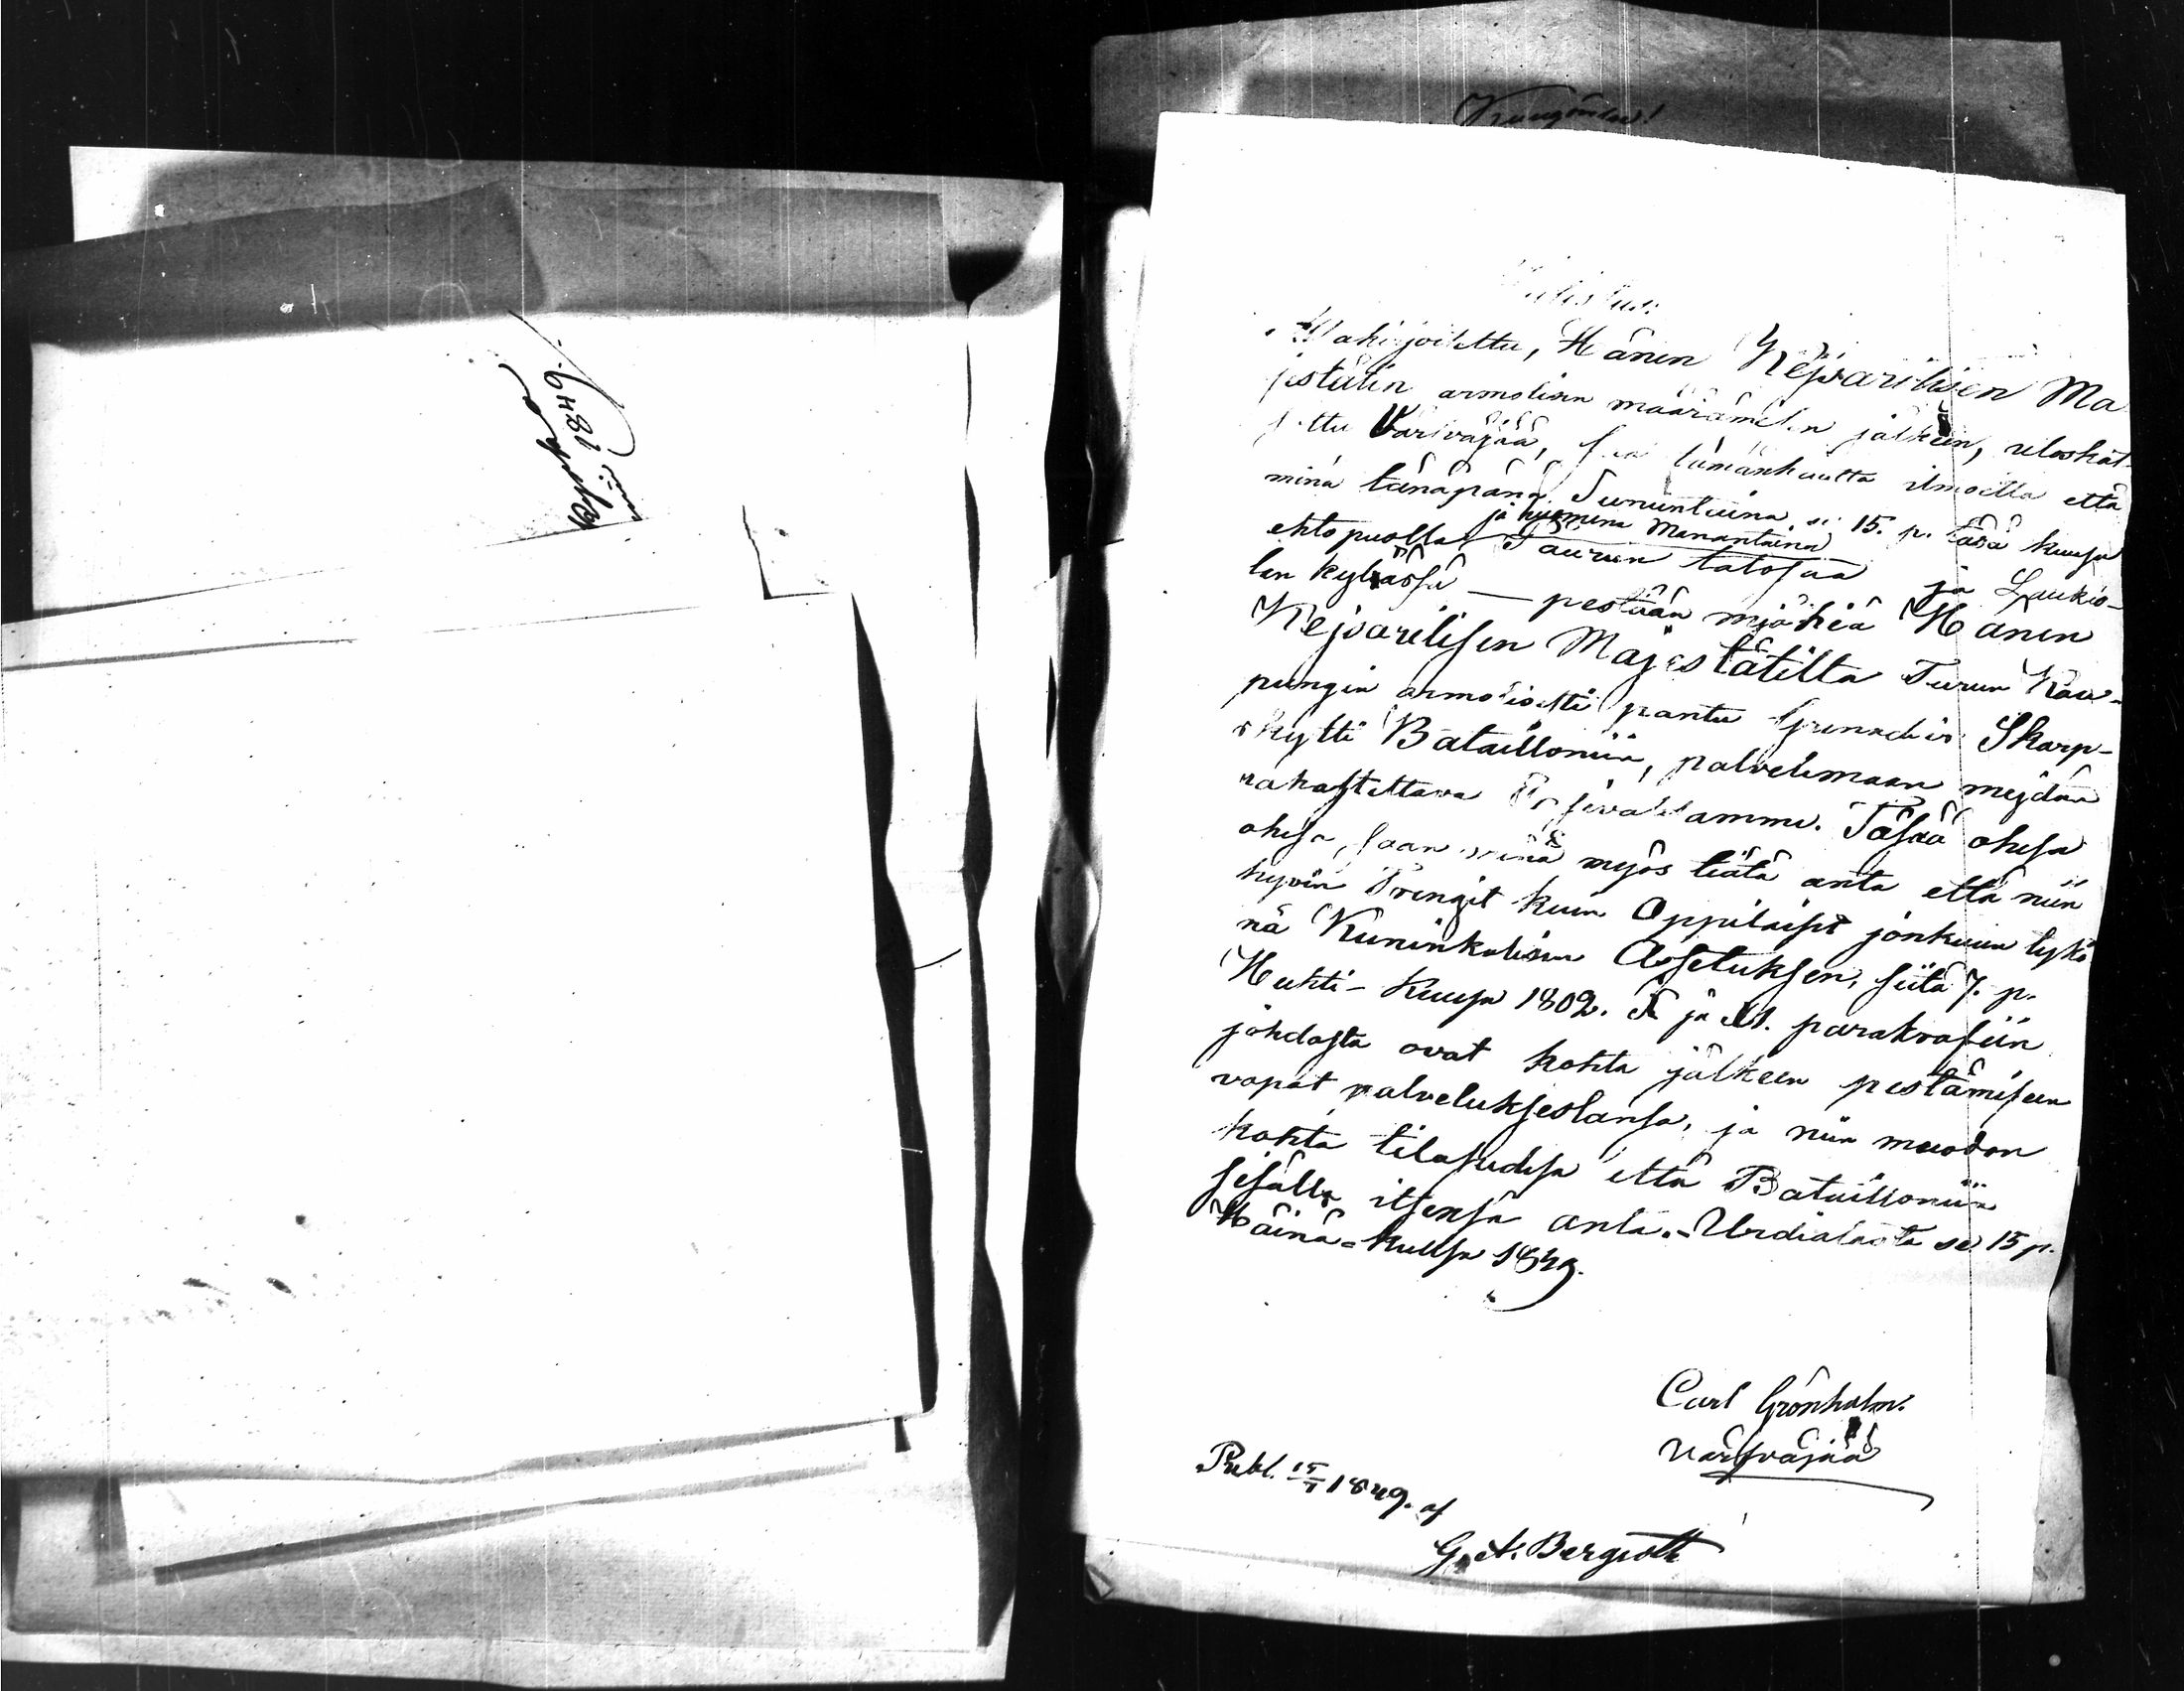 1849.
Kuulutus.
Allakirjoitettu, Hänen Kejsarilisen Ma-
jestätin armolisen määrämisen jälkeen, uloskat-
sottu Värfväjää, saa tämänkautta ilmoitta että
minä tänäpänä Sununtaina, se 15. p. täsä kuusa
ja huomena Manantaina
ehtopuolla Taurun talosaa ja Laukio-
len kyläässä — pestään miähiä Hänen
Kejsarilisen Majestätiltä Turun Kau-
pungin armolisesti pantu Grenadier Skarp-
skytti Batailloniin, palvelemaan meidän
rakastettava Esivaldamme. Täsää ohesa
ohesa, saan minä myös tiätä anta että niin
hyvin Drengit kuin Oppilaiset jonkuun lykö
nä Kuninkalisen Assetuksen, siitä 7. p.
Huhti-Kuusa 1802. § ja 11. parakrafiin
johdasta ovat kohta jälkeen pestämiseen
vapat palveluksestansa, ja niin muodon
kohta tilasudesa että Bataillioniin
sisälle ittensä anta. - Urdialasta se 15 p.
Häinä-kuusa 1849.
Carl Grönholm.
Värfväjää
Publ. 15/7 1849. af
G. A. Bergroth